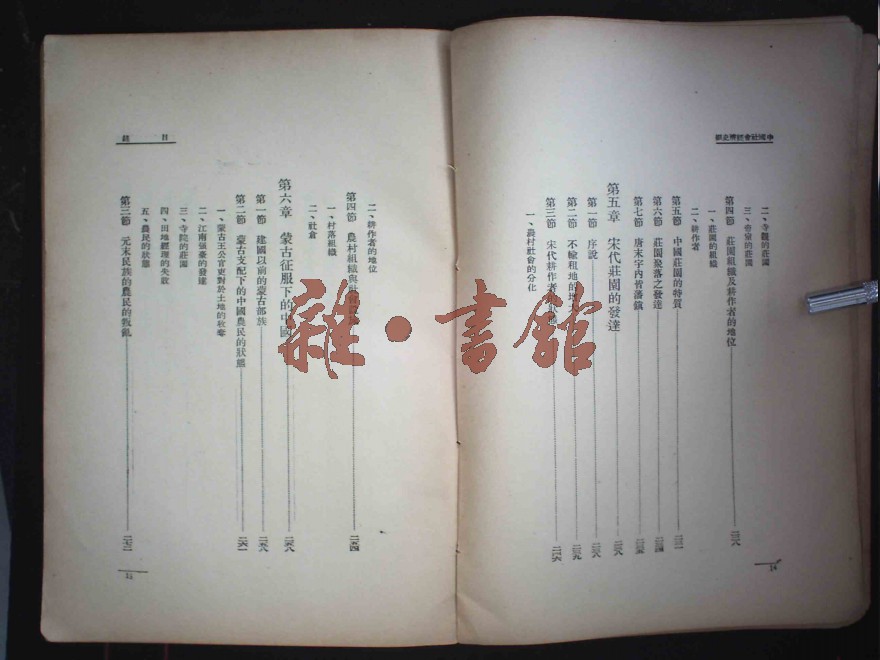 中國社會經濟史綱
二、寺觀的莊園
三、帝室的莊園
第四節 莊園組織及耕作者的地位
一、莊園的組織
二、耕作者
第五節 中國莊園的特質
第六節 莊園聚落之發達
第七節 唐末宇內皆藩鎮
第五章 宋代莊園的發達
第一節 序說
第二節 不輸租地的
第三節 宋代耕作者
一、農村社會的分化
14
目錄
二、耕作者的地位
第四節 農村組織與社會
一、村落組織
二、社倉
第六章 蒙古征服下的中國
第一節 建國以前的蒙古部族
第二節 蒙古支配下的中國農民的狀態
一、蒙古王公官吏對於土地的牧奪
二、江南強豪的發達
三、寺院的莊園
四、田地經理的失敗
五、農民的狀態
第三節 元末民族的農民的叛亂
15
雜·書館